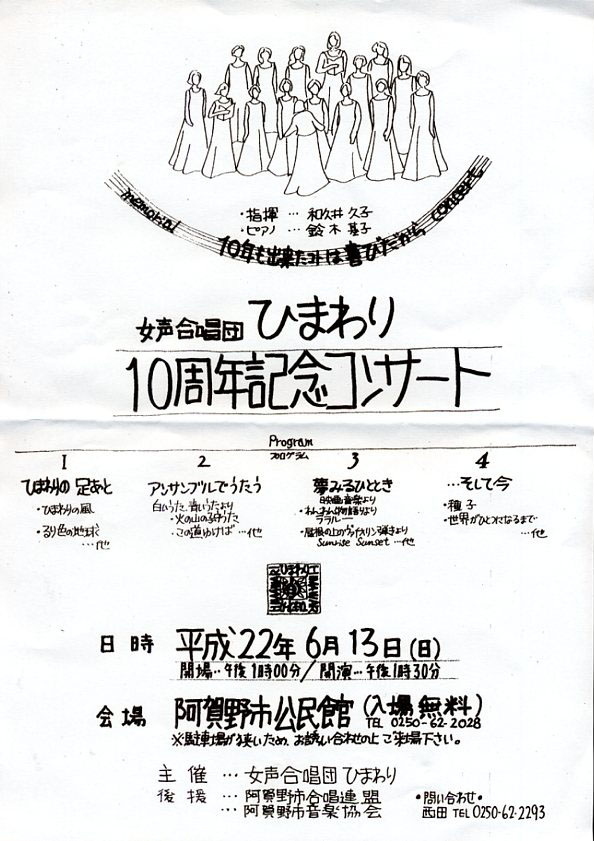 ・指揮 … 和久井 久子
・ピアノ … 鈴木 基子
memorial 10年も出来たコトは喜びだから concert
女声合唱団 ひまわり
10周年記念コンサート
Program
プログラム
1
ひまわりの 足あと
・ひまわりの風
・るり色の地球
…他
2
アンサンブルでうたう
白いうた、青いうたより
・火の山の子守うた
・この道ゆけば …他
3
夢みるひととき
映画音楽より
・わんわん物語りより
ララルー
・屋根の上のヴァイオリン弾きより
Sunrise Sunset …他
4
…そして今
・種子
・世界がひとつになるまで
…他
ひまわり
日時 平成22年 6月 13日(日)
開場‥午後1時00分/開演…午後1時30分
会場 阿賀野市公民館(入場無料)
TEL 0250-62-2028
※駐車場が狭いため、お誘い合わせの上ご来場下さい。
主催 … 女声合唱団 ひまわり
後援 … 阿賀野市合唱連盟
… 阿賀野市音楽協会
・問い合わせ・
西田 TEL 0250-62-2293